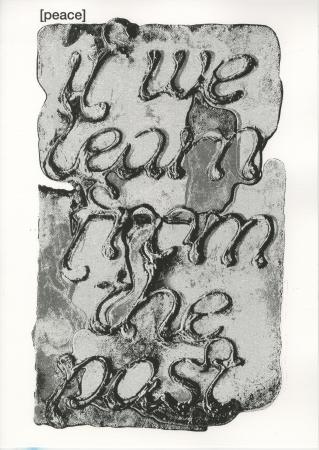 [peace]
if we
learn
from
the
past